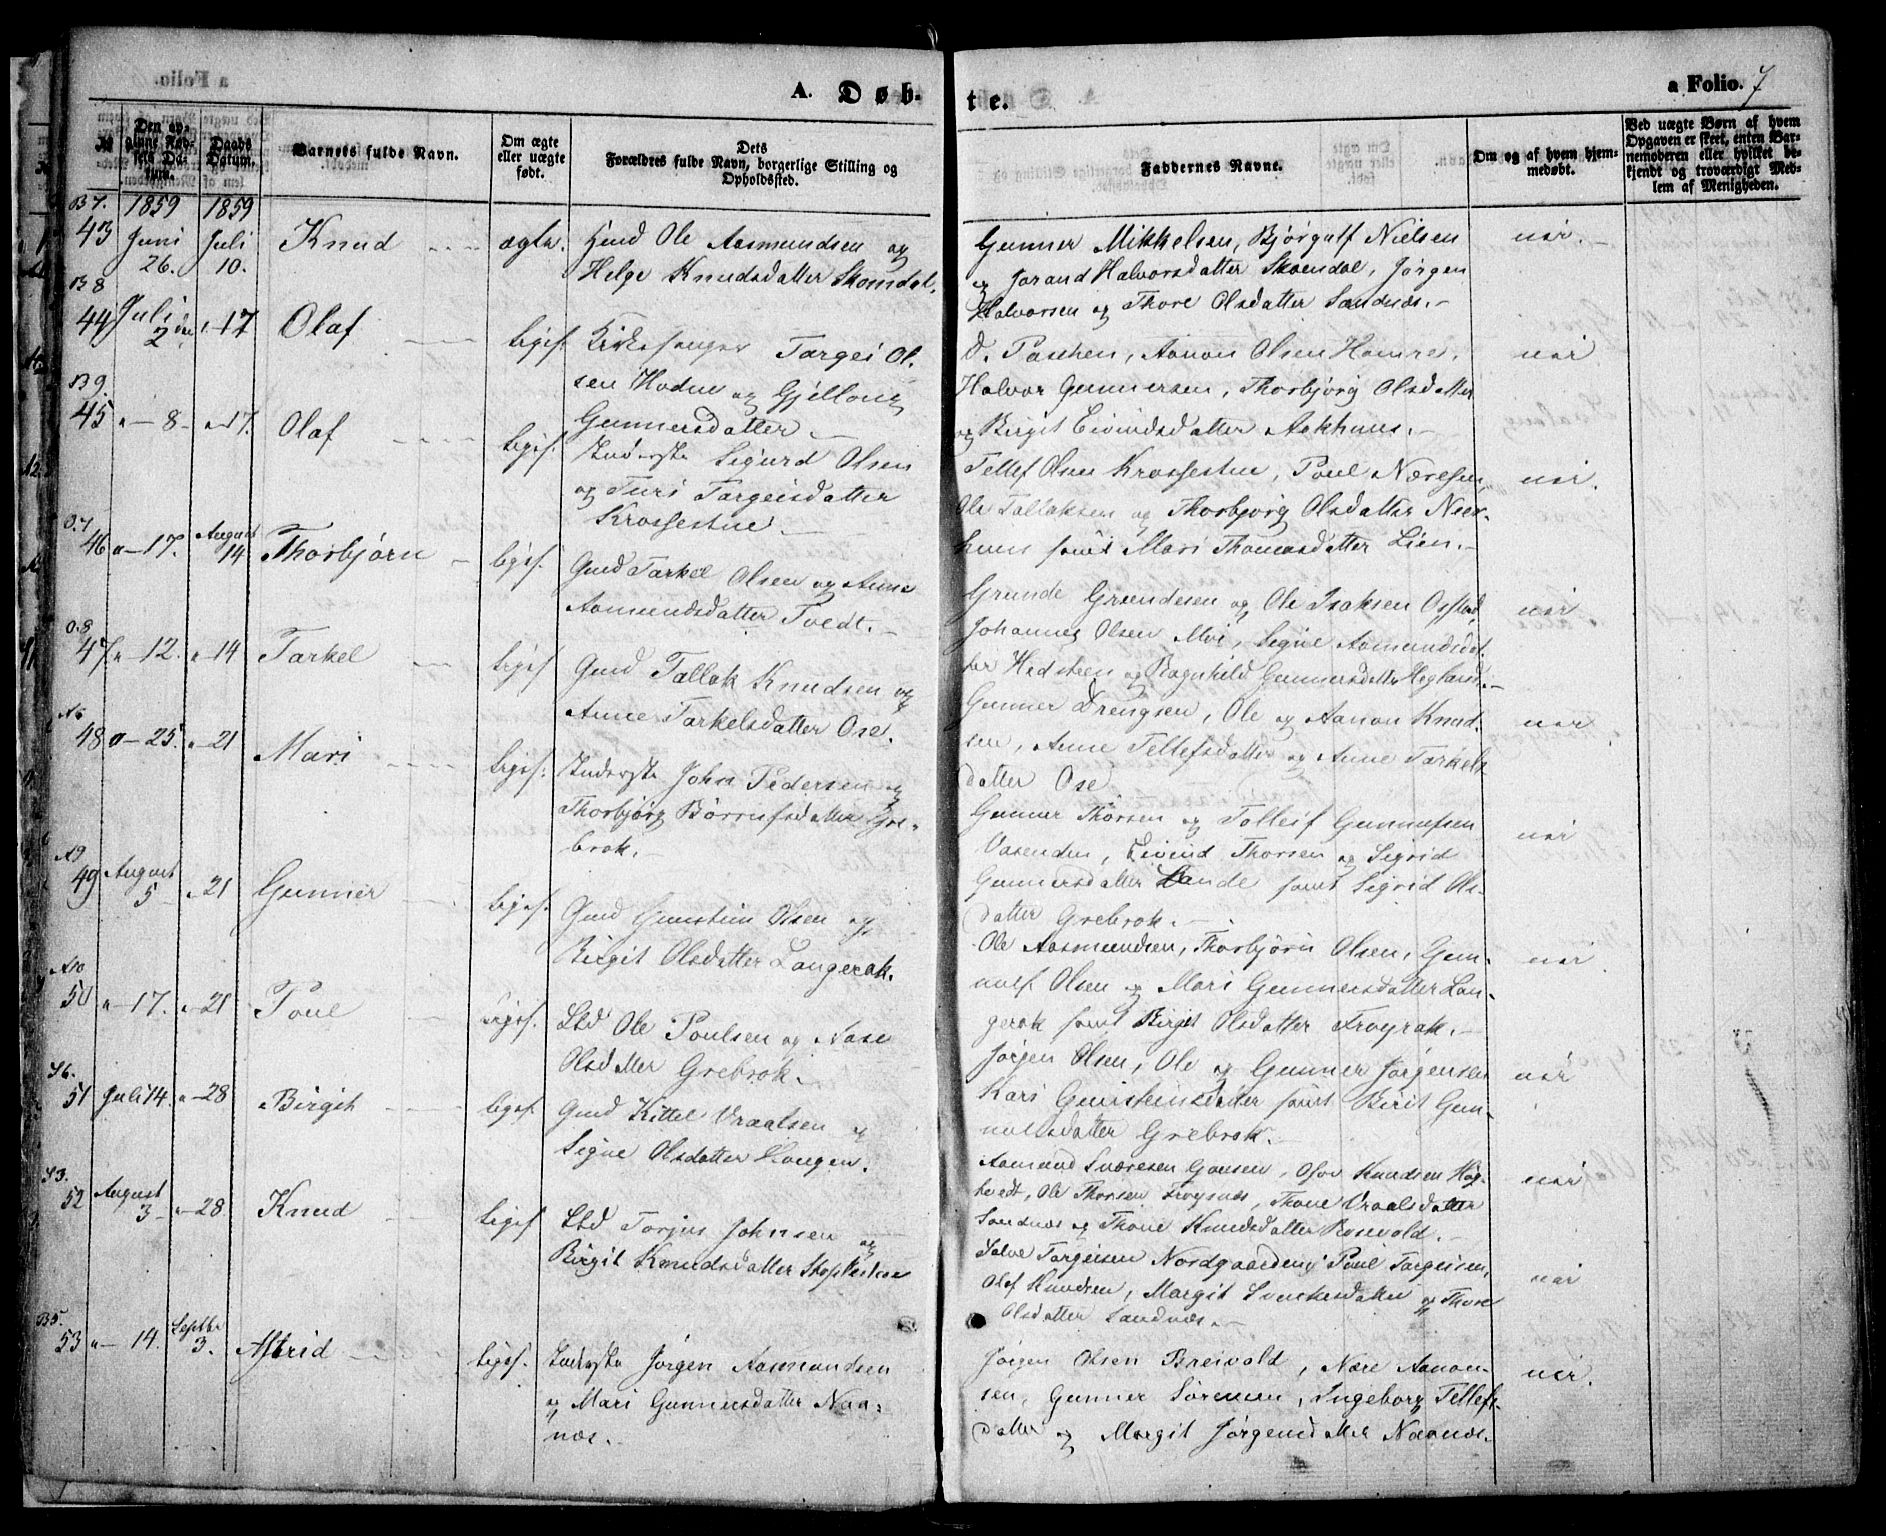 a Folio.
A. Døb-
te.
a Folio. 7
№
Den opgivne Fødsels Datum.
Daabs Datum.
Barnets fulde Navn.
Om ægte eller uægte født.
Dets Forældres fulde Navn, borgerlige Stilling og Opholdsted.
Faddernes Navne.
Om og af hvem hjemmedøbt.
Ved uægte Børn af hvem Opgaven er skeet, enten Barnemoderen eller hvilket bekjendt og troværdigt Medlem af Menigheden.
B 7. 1859 1859
43 Juni 26. Juli 10. Knud ægte. Gmd Ole Aasmundsen og
Helge Knudsdatter Skomdal.
Gunner Mikkelsen, Bjørgulf Nielsen
og Jorand Halvorsdatter Skomdal, Jørgen
Halvorsen og Thore Olsdatter Sandnæs.-
nei.
B 8
44 Juli 2 den "-17 Olaf liges. Kirkesanger Targei Ol-
sen Hodne og Gjellong
Gunnersdatter.-
D. Paschen, Aanon Olsen Homre,
Halvor Gunnersen, Thorbjørg Olsdatter
og Birgit Eivindsdatter Aakhuus.-
nei
B 9.
45 "- 8- "-17. Olaf ligef. Inderste Sigurd Olsen
og Turi Targeisdatter
Krossestue.-
Tellef Olsen Krossestue, Poul Næresen,
Ole Tallaksen og Thorbjørg Olsdatter
samt Mari Thomasdatter Lien.-
nei.
O.7
46 "-17. August 14 Thorbjørn ligef. Gmd Tarkel Olsen og Anne
Aamundsdatter Tvedt.-
Grunde Grundesen og Ole Isaksen
Johannes Olsen Moi, Signe Aamundsdat-
ter Hedsteen og Ragnhild Gunnersdatter Hegland.-
nei
O.8
47 "-12. "-14 Tarkel ligef. Gmd Tallak Knudsen og
Anne Tarkelsdatter Ose.
Gunner Drengsen, Ole og Aanon Knud-
sen, Anne Tellefsdatter og Anne Tarkels-
datter Ose
nei
48 "-25. "-21 Mari ligef. Inderste John Pedersen og
Thorbjørg Børrufsdatter Gre-
brok.-
Gunner Thorsen og Tolleif Gunnufsen
Vasenden, Eivind Thorsen og Sigrid
Gunnersdatter Lande samt Sigrid Ols-
datter Grebrok.-
nei
A9
49 August 5 "-21 Gunner ligef. Gmd Gunstein Olsen og
Birgit Olsdatter Langerak.
Ole Aasmundsen, Thorbjørn Olsen, Gun-
nulf Olsen og Mari Gunnersdatter Lan-
gerak samt Birgit Olsdatter Frøyrak.-
nei
A10
50 "-17. "-21 Poul ligef. Lbd Ole Poulsen og Aase
Olsdatter Grebrok.
Jørgen Olsen, Ole og Gunner Jørgensen
Kari Gunsteinsdatter samt Birit Gun-
nulsdatter Grebrok.
nei
51 Juli 14. "-28 Birgit ligef. Gmd Kittel Vraalsen og
Signe Olsdatter Haugen.
Aamund Sværesen, Olov Knudsen Høg-
tvedt, Ole Thorsen Frøysnæs, Thone Vraalsdatter
Sandnæs og Thone Knudsdatter Rosevold.-
nei
52 August 3- "-28 Knud ligef. Lbd Torjus Johnsen og
Birgit Knudsdatter
Salve Targeisen Nordgaarden, Poul Targeisen,
Olaf Knudsen, Margit og Thore
Olsdatter Sandnæs.-
nei
B5.
53 "- 14. Septbr 3. Astrid ligef. Inderste Jørgen Aasmundsen
og Mari Gunnersdatter Naa-
næs.
Jørgen Olsen Breivold, Nære Aanon-
sen, Gunner Sørensen, Ingeborg Tellefs-
datter og Margit Jørgensdatter Naanæs.
nei.